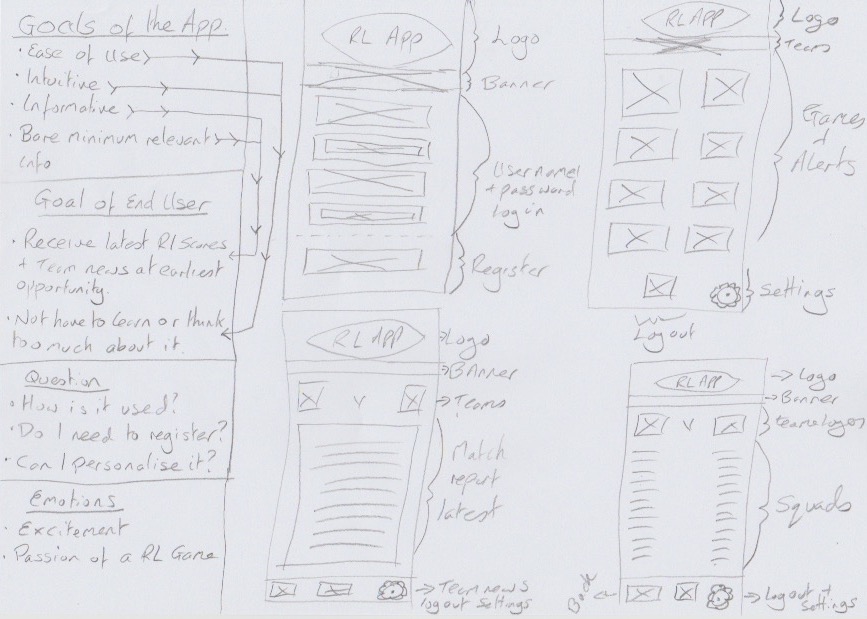 Goals of the App.
· Ease of Use
· Intuitive
· Informative
· Bare minimum relevant
info
Goal of End User
· Receive latest RL Scores
+ Team news at earliest
opportunity.
· Not have to learn or think
too much about it.
Question
· How is it used?
· Do I need to register?
· Can I personalise it?
Emotions
· Excitement
· Passion of a RL Game
RL APP
Logo
Banner
Username
+ password
log in
Register
RL APP
Logo
Teams
Games
+
Alerts
Settings
Logout
RL APP
Logo
BAnner
V
Teams
Match
report
latest
Team news
logout settings
RL APP
Logo
Banner
V
team logos
Squads
Back
Logout +
Settings